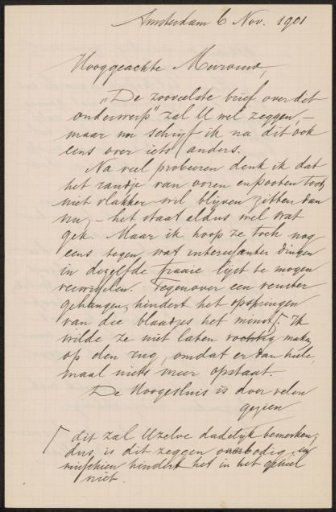 Amsterdam 6 Nov. 1901
Hooggeachte Mevrouw,
"De zooveelste brief over dit
onderwerp" zal U wel zeggen, –
maar nu schrijf ik na dit ook
eens over iets anders.
Na veel probeeren denk ik dat
het zandje van voren en pooten toch
niet vlakker wil blijven zitten dan
nu, – het staat aldus wel wat
gek. Maar ik hoop ze toch nog
eens tegen wat interessanter dingen
in dezelfde fraaie lijst te mogen
verwisselen. Tegenover een venster
gehangen, hindert het opspringen
van die blaadjes het minst. Ik
wilde ze niet laten vochtig maken
op den rug, omdat er dan heele-
maal niets meer opstaat.
De Hoogesluis is door velen
gezien
dit zal Uzelve dadelijk bemerken,
dus is dit zeggen overbodig, en
misschien hindert het in het geheel
niet.